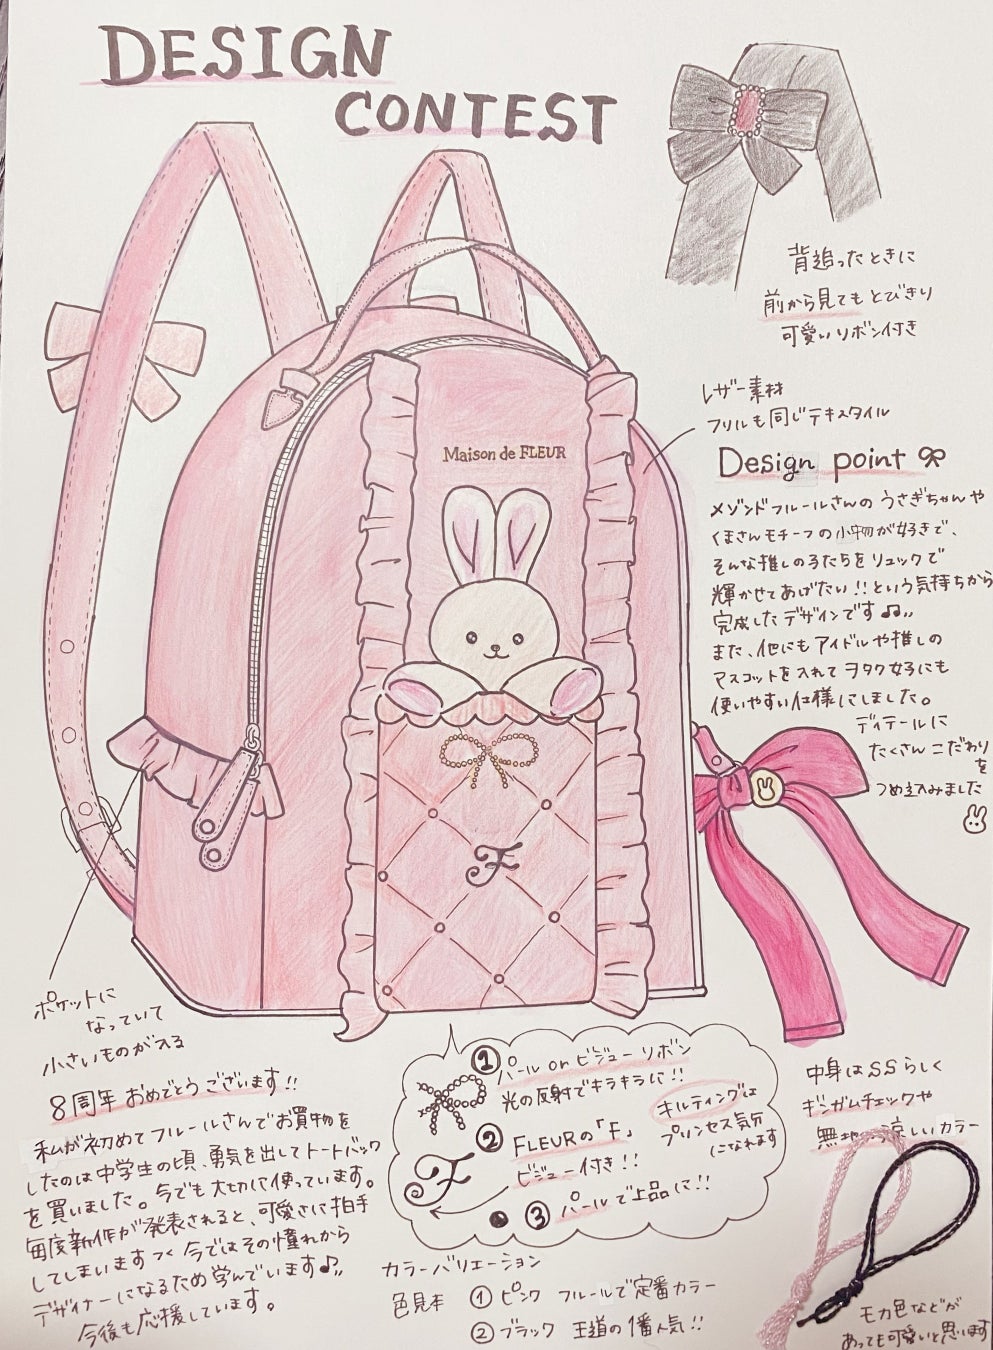 DESIGN
CONTEST
背追ったときに
前から見てもとびきり
可愛いリボン付き
レザー素材
フリルも同じテキスタイル
Maison de FLEUR
Design point
メゾンドフルールさんのうさぎちゃんや
くまさんモチーフの小物が好きで、
そんな推しの子たちをリュックで
輝かせてあげたい!!という気持ちから
完成したデザインです♫
また、他にもアイドルや推しの
マスコットを入れてヲタク女子にも
使いやすい仕様にしました。
ディテールに
たくさんこだわり
を
つめ込みました
F
ポケットに
なっていて
小さいものが入る
8周年おめでとうございます!!
私が初めてフルールさんでお買物を
したのは中学生の頃、勇気を出してトートバック
を買いました。今でも大切に使っています。
毎度新作が発表されると、可愛さに拍手
してしまいます 今ではその憧れから
デザイナーになるため学んでいます♪
今後も応援しています。
① パール or ビジューリボン
光の反射でキラキラに!!
キルティングは
プリンセス気分
になれます
② FLEURの「F」
ビジュー付き!!
F
③ パールで上品に!!
カラーバリエーション
色見本 ① ピンク フルールで定番カラー
② ブラック 王道の1番人気!!
中身はSSらしく
ギンガムチェックや
無地の涼しいカラー
モカ色などが
あっても可愛いと思います